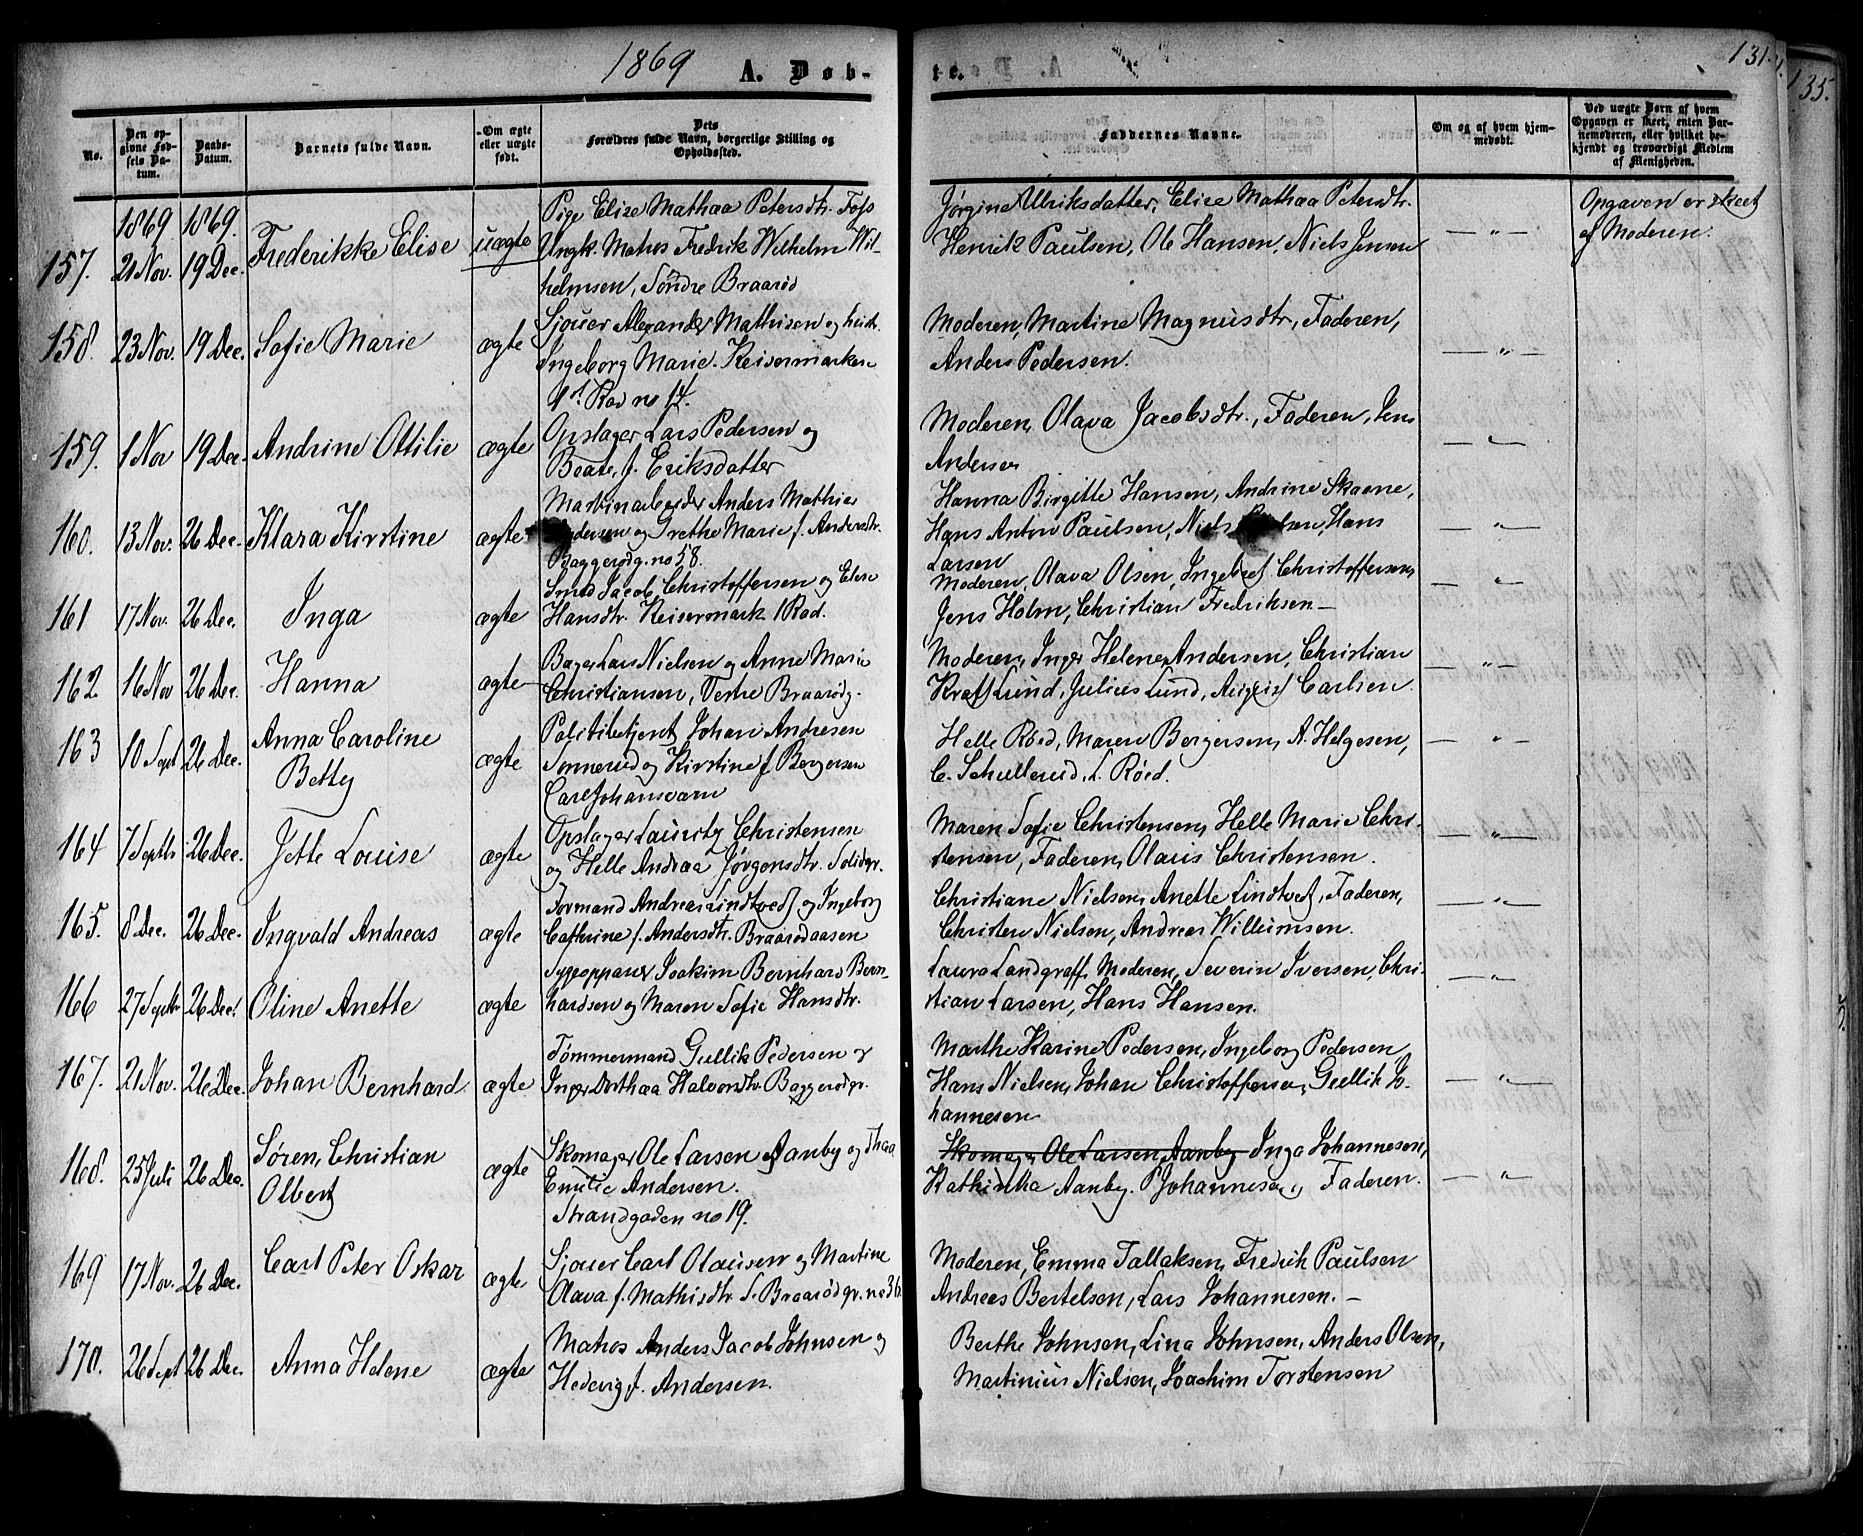 1869
A. Døb-
te.
131.
135.
No.
Den op-
givne Fød-
sels Da-
tum.
Daabs-
Datum.
Barnets fulde Navn.
Om ægte
eller uægte
født.
Dets
Forældres fulde Navn, borgerlige Stilling og
Opholdssted.
Faddernes Navne.
Om og af hvem hjem-
medøbt.
Ved uægte Børn af hvem
Opgaven er skeet, enten Bar-
nemoderen, eller hvilket be-
kjendt og troværdigt Medlem
af Menigheden.
157.
1869
21 Nov.
1869.
19 Dec.
Frederikke Elise
uægte
Pige Elise Mathaa Petersdtr. Foss
Ungk. Matros Fredrik Wilhelm Wil-
helmsen, Søndre Braarød
Jørgine Ulriksdatter, Elise Mathaa Petersdtr.
Henrik Paulsen, Ole Hansen, Niels Jensen
— " —
Opgaven er skeet
af Moderen.
158.
23 Nov.
19 Dec.
Sofie Marie
ægte
Sjouer Alexander Mathisen og hust.
Ingeborg Marie. Keisermarken
1st. Rad no 14.
Moderen, Martine Magnusdtr, Faderen,
Anders Pedersen.
— " —
159.
1 Nov
19 Dec.
Andrine Ottilie
ægte
Opslager Lars Pedersen og
Beate, f. Eriksdatter
Moderen, Olava Jacobsdtr., Faderen, Jens
Andersen
— " —
160.
13 Nov.
26 Dec.
Klara Kirstine
ægte
Maskinarbeider Anders Mathias
Andersen og Grethe Marie f. Andersdtr.
Baggerødg. no 58.
Hanna Birgitte Hansen, Andrine Skaane,
Hans Anton Paulsen, Niels Hans
Larsen
— " —
161
17 Nov.
26 Dec.
Inga
ægte
Smed Jacob Christoffersen og Elise
Hansdtr. Keisermark. 1 Rad.
Moderen, Olava Olsen, Ingebret Christoffersen,
Jens Holm, Christian Fredriksen —
— " —
162
16 Nov
26 Dec.
Hanna
ægte
Bager Lars Nielsen og Anne Marie
Christiansen, Vestre Braarødg.
Moderen, Inger Helene Andersen, Christian
Kraft Lund, Julius Lund, August Carlsen.
— " —
163
10 Sept
26 Dec.
Anna Caroline
Betty
ægte
Politibetjent Johan Andresen
Sønnerud og Kirstine f. Bergersen
Carl Johansværn
Helle Røed, Maren Bergersen, A. Helgesen,
C. Schullerud, L. Røed.
— " —
164
7 Septb.
26 Dec.
Jette Louise
ægte
Opslager Lauritz Christensen
og Helle Andrea Jørgensdtr. Solidgr.
Maren Sofie Christensen, Helle Marie Chri-
stensen, Faderen, Olaus Christensen.
— " —
165.
8 Dec.
26 Dec.
Ingvald Andreas
ægte
Formand Andreas Lindtvedt og Ingeborg
Cathrine f. Andersdtr. Braarødaasen
Christiane Nielsen, Anette Lindtvedt, Faderen,
Christen Nielsen, Andreas Willumsen.
— " —
166
27 Septbr
26 Dec.
Oline Anette
ægte
Sygeoppasser Joakim Bernhard Bern-
hardsen og Maren Sofie Hansdtr.
Laura Landgraff, Moderen, Severin Iversen, Chri-
stian Larsen, Hans Hansen.
— " —
167.
21 Nov.
26 Dec.
Johan Bernhard
ægte
Tømmermand Gullik Pedersen &
Inger Dorthaa Halvorsdtr. Baggerødgr.
Marthe Karine Pedersen, Ingeborg Pedersen,
Hans Nielsen, Johan Christoffersen, Gullik Jo-
hannesen
— " —
168.
25 Juli
26 Dec.
Søren, Christian
Olbert
ægte
Skomager Ole Larsen Aanby og Thaa
Emilie Andersen.
Strandgaden no 19.
Skomager Ole Larsen Aanby Inga Johannesen,
Kathinka Aanby. P Johannesen, Faderen.
— " —
169
17 Nov.
26 Dec.
Carl Peter Oskar
ægte
Sjouer Carl Olausen og Martine
Olava f. Mathisdtr S. Braarødgr. no 36
Moderen, Emma Tallaksen, Fredrik Paulsen
Andreas Bertelsen, Lars Johannesen. —
170.
26 Sept
26 Dec.
Anna Helene
ægte
Matros Anders Jacob Johnsen og
Hedevig f. Andersen.
Berthe Johnsen, Lina Johnsen, Anders Olsen,
Martinius Nielsen, Joachim Torstensen